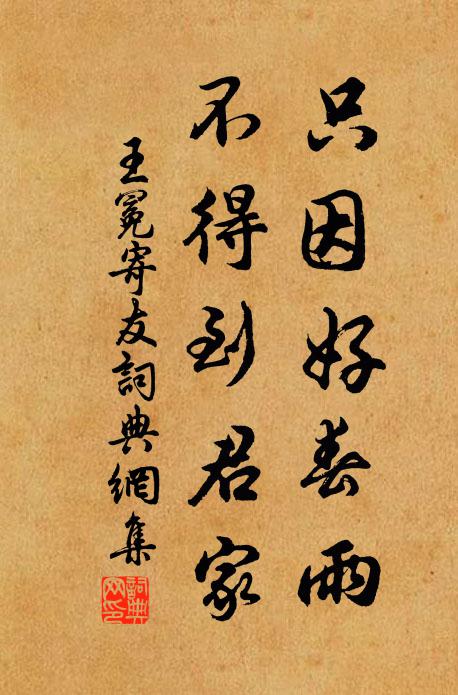 只因好春雨
不得到君家
王冕寄友詞典網集
詞典
网印